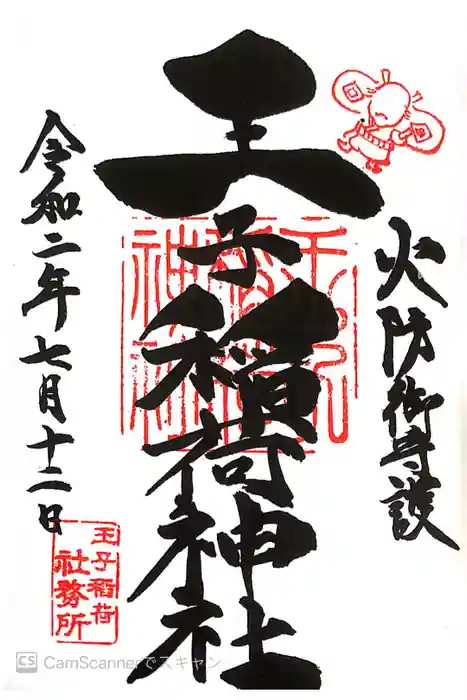 火防御守護
王子稲荷神社
令和二年七月十二日
王子稲荷
社務所
CS CamScannerでスキャン